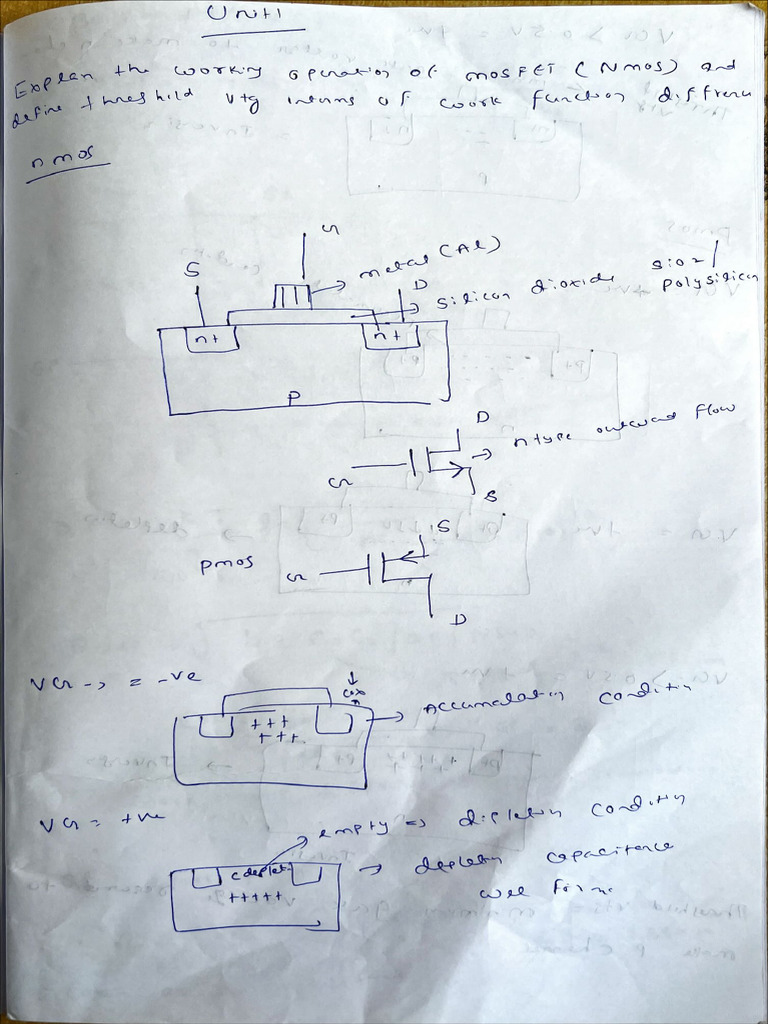 Unit 1
Explan the working operation of mosFET (Nmos) and
define threshold vtg interms of work function diffrenc
nmos
G
metal (Al)
S
D
silicon dioxide
sio2 / polysilicon
n+
n+
P
D
n type outward flow
G
S
pmos
S
G
D
VG -> = -ve
cox
+++
+++
Accumulation condition
VG = +ve
empty => dipletion condition
cdeplet
+++++
depletion capacitence
will form